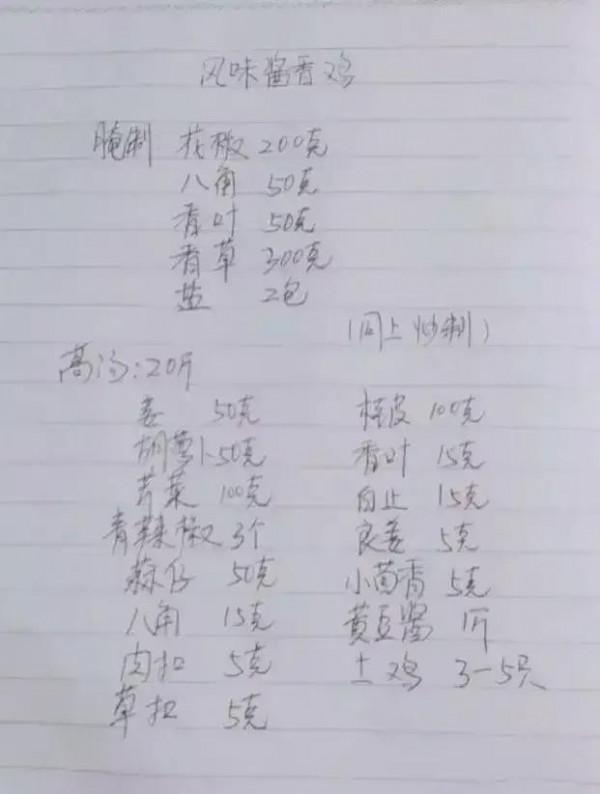 风味酱香鸡
腌制 花椒 200克
八角 50克
香叶 50克
香草 300克
盐 2包
(同上炒制)
高汤:20斤
姜 50克
胡萝卜50克
芹菜 100克
青辣椒 3个
蒜仔 50克
八角 15克
肉扣 5克
草扣 5克
桂皮 100克
香叶 15克
白止 15克
良姜 5克
小茴香 5克
黄豆酱 1斤
土鸡 3-5只